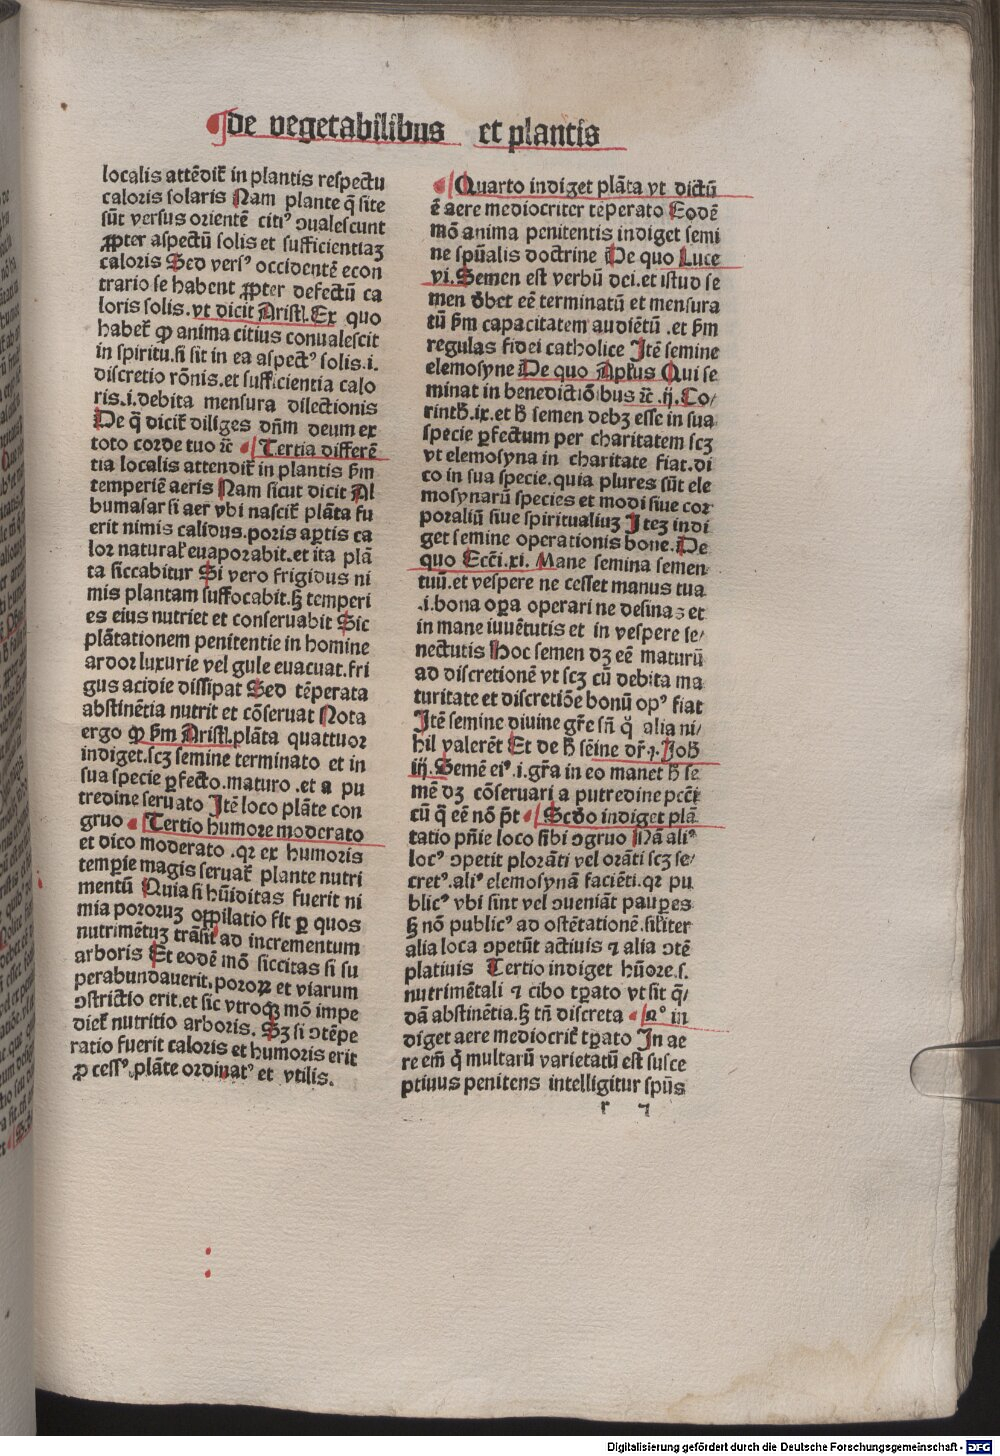 de vegetabilibus et plantis
localis attēdit̄ in plantis respectu
caloris solaris Nam plante q̄ site
sūt versus orientē citiꝰ ꝯualescunt
ꝓpter aspectū solis et sufficientiaꝫ
caloris Sed versꝰ occidentē econ
trario se habent ꝓpter defectū ca
loris solis. vt dicit Aristl. Ex quo
habet̄ ꝙ anima citius conualescit
in spiritu. si sit in ea aspectꝰ solis .i.
discretio rōnis. et sufficientia calo
ris .i. debita mensura dilectionis
De q̄ dicit̄ diliges dn̄m deum ex
toto corde tuo ⁊c̄ Tertia differē
tia localis attendit̄ in plantis ẜm
temperiē aeris Nam sicut dicit Al
bumasar si aer vbi nascit̄ plāta fu
erit nimis calidus. poris aꝑtis ca
lor natural̄ euaporabit. et ita plā
ta siccabitur Si vero frigidus ni
mis plantam suffocabit. ꝫ temperi
es eius nutriet et conseruabit Sic
plātationem penitentie in homine
ardor luxurie vel gule euacuat. fri
gus acidie dissipat Sed tēperata
abstinētia nutrit et cōseruat Nota
ergo ꝙ ẜm Aristl. plāta quattuor
indiget. scꝫ semine terminato et in
sua specie ꝑfecto. maturo. et a pu
tredine seruato Itē loco plāte con
gruo Tertio humore moderato
et dico moderato. qꝛ ex humoris
temꝑie magis seruat̄ plante nutri
mentū Quia si hūiditas fuerit ni
mia pororuꝫ oppilatio fit ꝑ quos
nutrimētuꝫ trāsit ad incrementum
arboris Et eodē mō siccitas si su
perabundauerit. pororꝝ et viarum
ꝯstrictio erit. et sic vtroqꝫ mō impe
diet̄ nutritio arboris. Sꝫ si ꝯtēpe
ratio fuerit caloris et humoris erit
ꝓcessꝰ plāte ordinatꝰ et vtilis.
Quarto indiget plāta vt dictū
ē aere mediocriter tēperato Eodē
mō anima penitentis indiget semi
ne spūalis doctrine De quo Luce
vi. Semen est verbū dei. et istud se
men dꝫbet eē terminatū et mensura
tū ẜm capacitatem audiētū. et ẜm
regulas fidei catholice Itē semine
elemosyne De quo Apl̄us Qui se
minat in benedictiōibus ⁊c̄. ij. Co/
rinth̄. ix. et h̄ semen debꝫ esse in sua
specie ꝑfectum per charitatem scꝫ
vt elemosyna in charitate fiat. di
co in sua specie. quia plures sūt ele
mosynarū species et modi siue cor
poraliū siue spiritualiuꝫ Iteꝫ indi
get semine operationis bone. De
quo Ecc̄i. xi. Mane semina semen
tuū. et vespere ne cesset manus tua
.i. bona oꝑa operari ne desinas et
in mane iuuētutis et in vespere se/
nectutis Hoc semen dꝫ eē maturū
ad discretionē vt scꝫ cū debita ma
turitate et discretiōe bonū opꝰ fiat
Itē semine diuine gr̄e sn̄ q̄ alia ni/
hil valerēt Et de h̄ sēine dr̄. ꝛ. Joh̄
iij. Semē eiꝰ .i. gr̄a in eo manet h̄ se
mē dꝫ cōseruari a putredine pctī
cū q̄ eē nō pōt Scd̄o indiget plā
tatio pn̄ie loco sibi ꝯgruo Nā aliꝰ
locꝰ ꝯpetit plorāti vel orāti scꝫ se/
cretꝰ. aliꝰ elemosynā faciēti. qꝛ pu
blicꝰ vbi sint vel ꝯueniāt pauꝑes
ꝫ nō publicꝰ ad ostētationē. sil̄iter
alia loca ꝯpetūt actiuis ⁊ alia ꝯtē
platiuis Tertio indiget hūore .s.
nutrimētali ⁊ cibo tꝑato vt sit q̄/
dā abstinētia. ꝫ tn̄ discreta 4ꝰ in
diget aere mediocrit̄ tꝑato In ae
re em̄ q̄ multarū varietatū est susce
ptiuus penitens intelligitur spūs
r ⁊
Digitalisierung gefördert durch die Deutsche Forschungsgemeinschaft - DFG